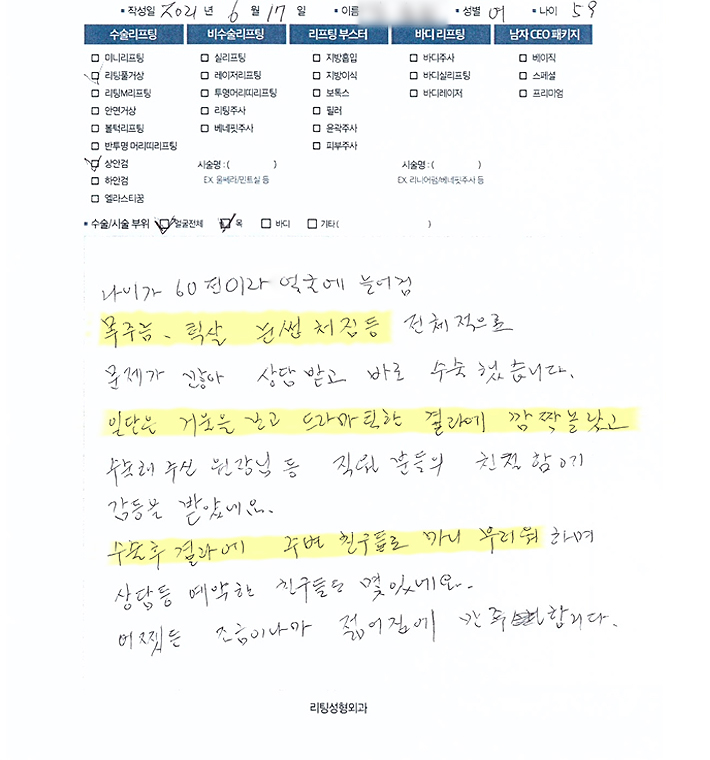 작성일 2021 년 6 월 17 일 이름 성별 여 나이 59
수술리프팅 비수술리프팅 리프팅 부스터 바디 리프팅 남자 CEO 패키지
미니리프팅 실리프팅 지방흡입 바디주사 베이직
리팅풀거상 레이저리프팅 지방이식 바디실리프팅 스페셜
리팅M리프팅 투명머리띠리프팅 보톡스 바디레이저 프리미엄
안면거상 리팅주사 필러
볼턱리프팅 베네핏주사 윤곽주사
반투명 머리띠리프팅 피부주사
상안검 시술명 : ( ) 시술명 : ( )
하안검 EX. 울쎄라/민트실 등 EX. 리니어펌/베네핏주사 등
엘라스티꿈
수술/시술 부위 얼굴전체 목 바디 기타 ( )
나이가 60 전이라 얼굴에 늘어짐
목주름、턱살 눈썹 처짐등 전체적으로
문제가 많아 상담 받고 바로 수술 했습니다.
일단은 거울을 보고 드라마틱한 결과에 깜짝놀랐고
수술해 주신 원장님 등 직원 분들의 친절함에
감동을 받았네요.
수술후 결과에 주변 친구들도 마니 부러워 하며
상담등 예약한 친구들도 몇있네요.
어쨌든 조금이나마 젊어짐에 합니다.
리팅성형외과